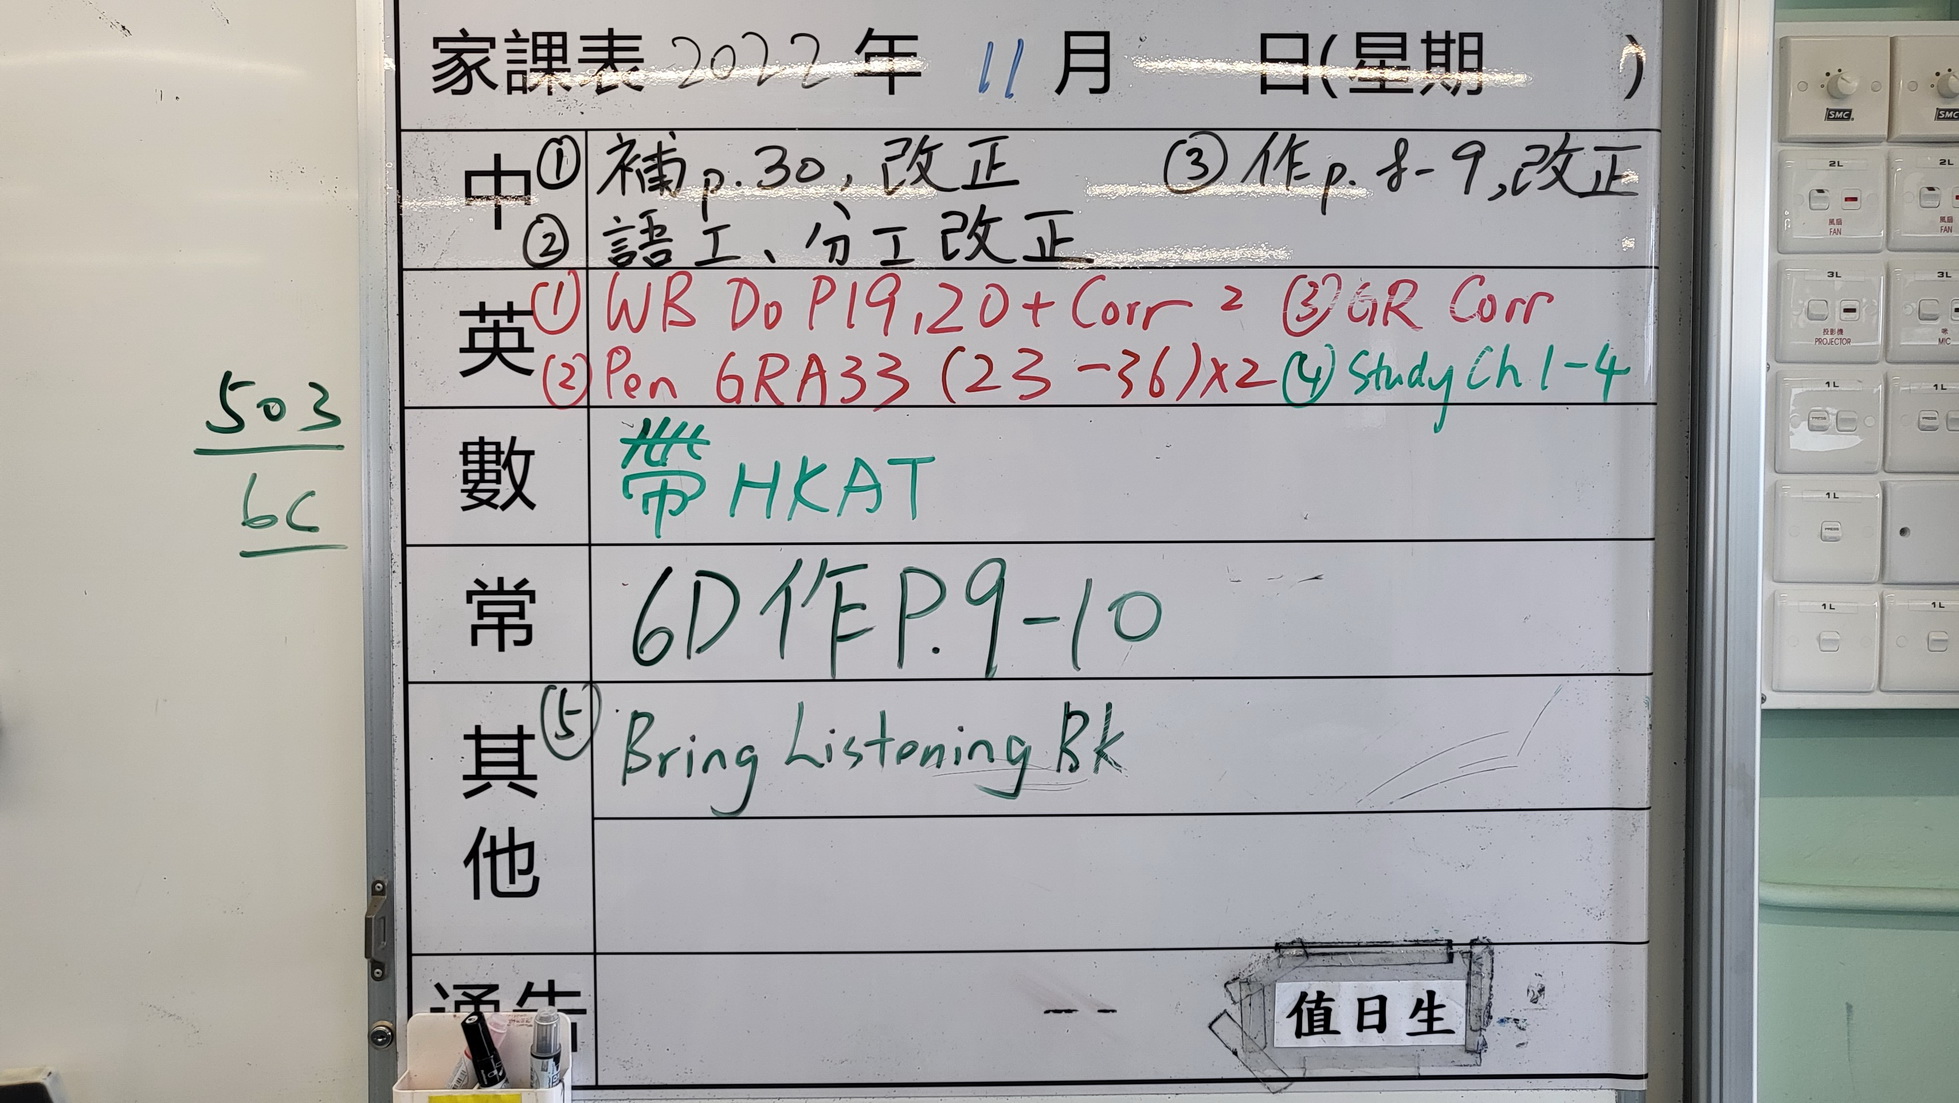 家課表 2022 年 11 月 日(星期 )
中 ① 補 p.30, 改正 ③ 作 p. 8-9, 改正
② 語工、分工改正.
英 (1) WB Do P19,20 + Corr 2 (3) GR Corr
(2) Pen GRA33 (23-36)x2 (4) Study Ch 1-4
數 帶 HKAT
常 6D 作 P.9-10
其他 (5) Bring Listening Bk
通告
值日生
503
6C
SMC
SMC
2L
風扇
FAN
2L
風扇
FAN
3L
投影機
PROJECTOR
3L
咪
MIC
1L
PRESS
1L
1L
PRESS
1L
1L